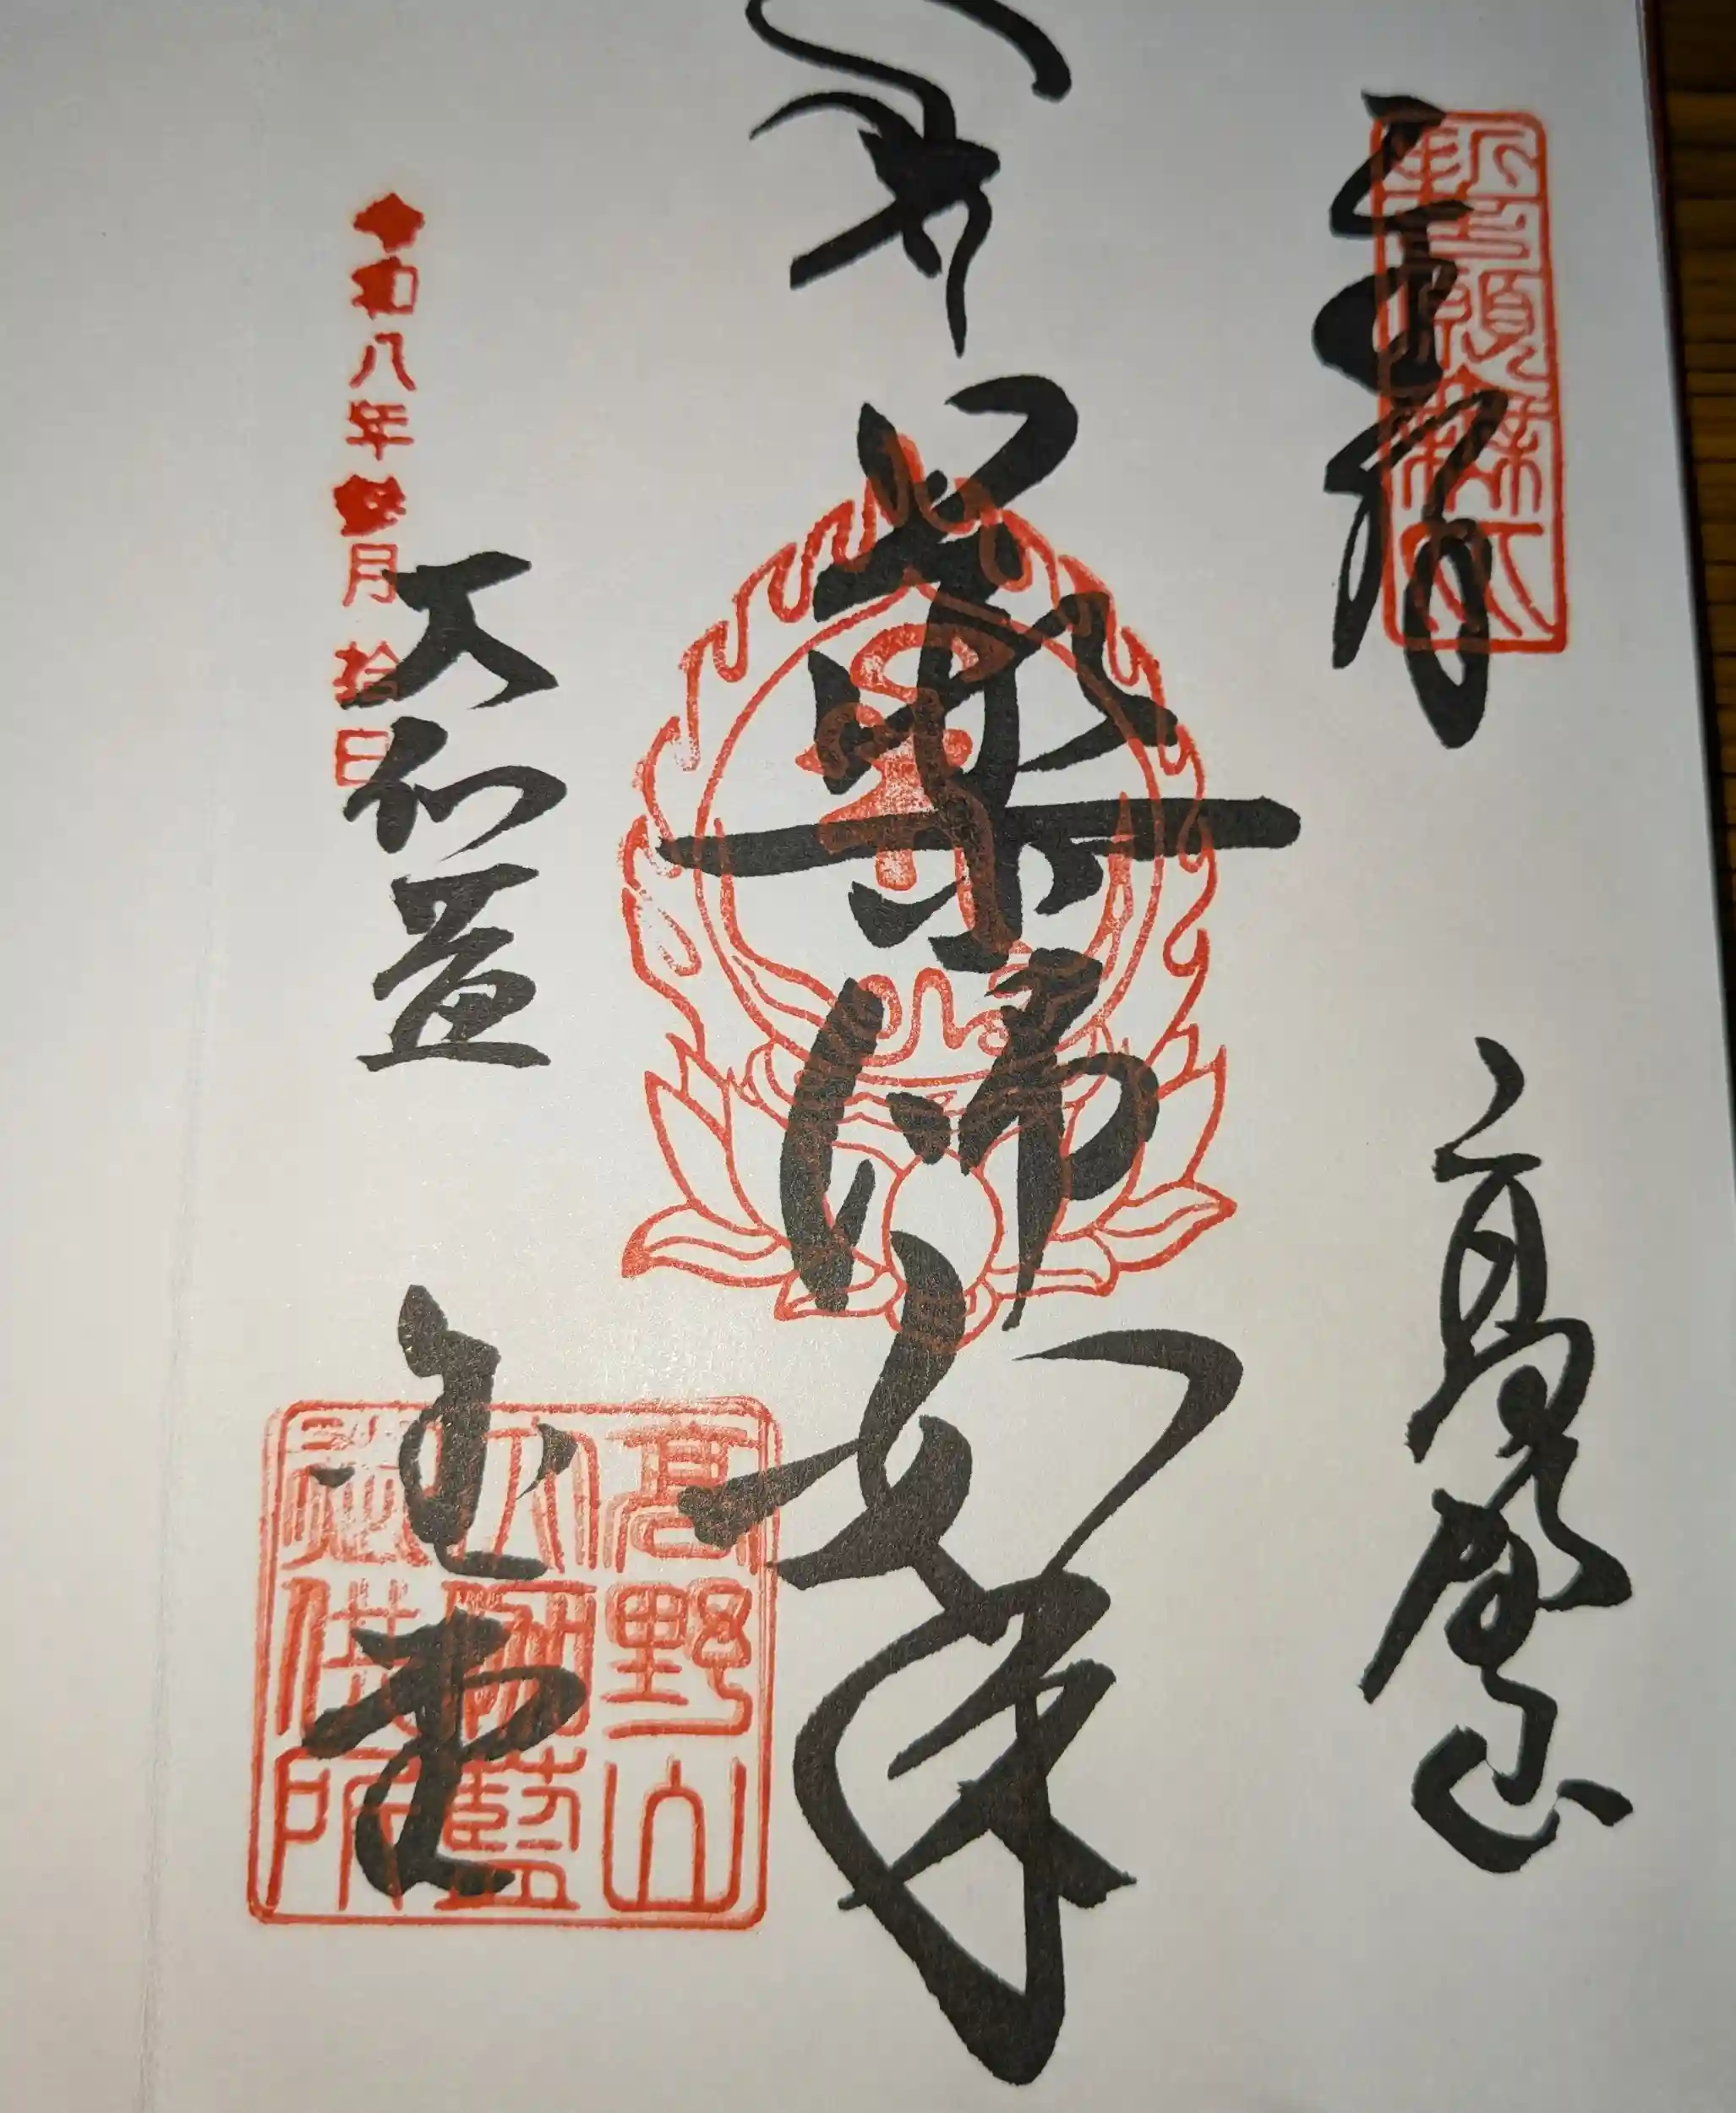 奉拝
高野山
薬師如来
大伽藍
金堂
令和八年参月拾日
高野山
大伽藍
御供所